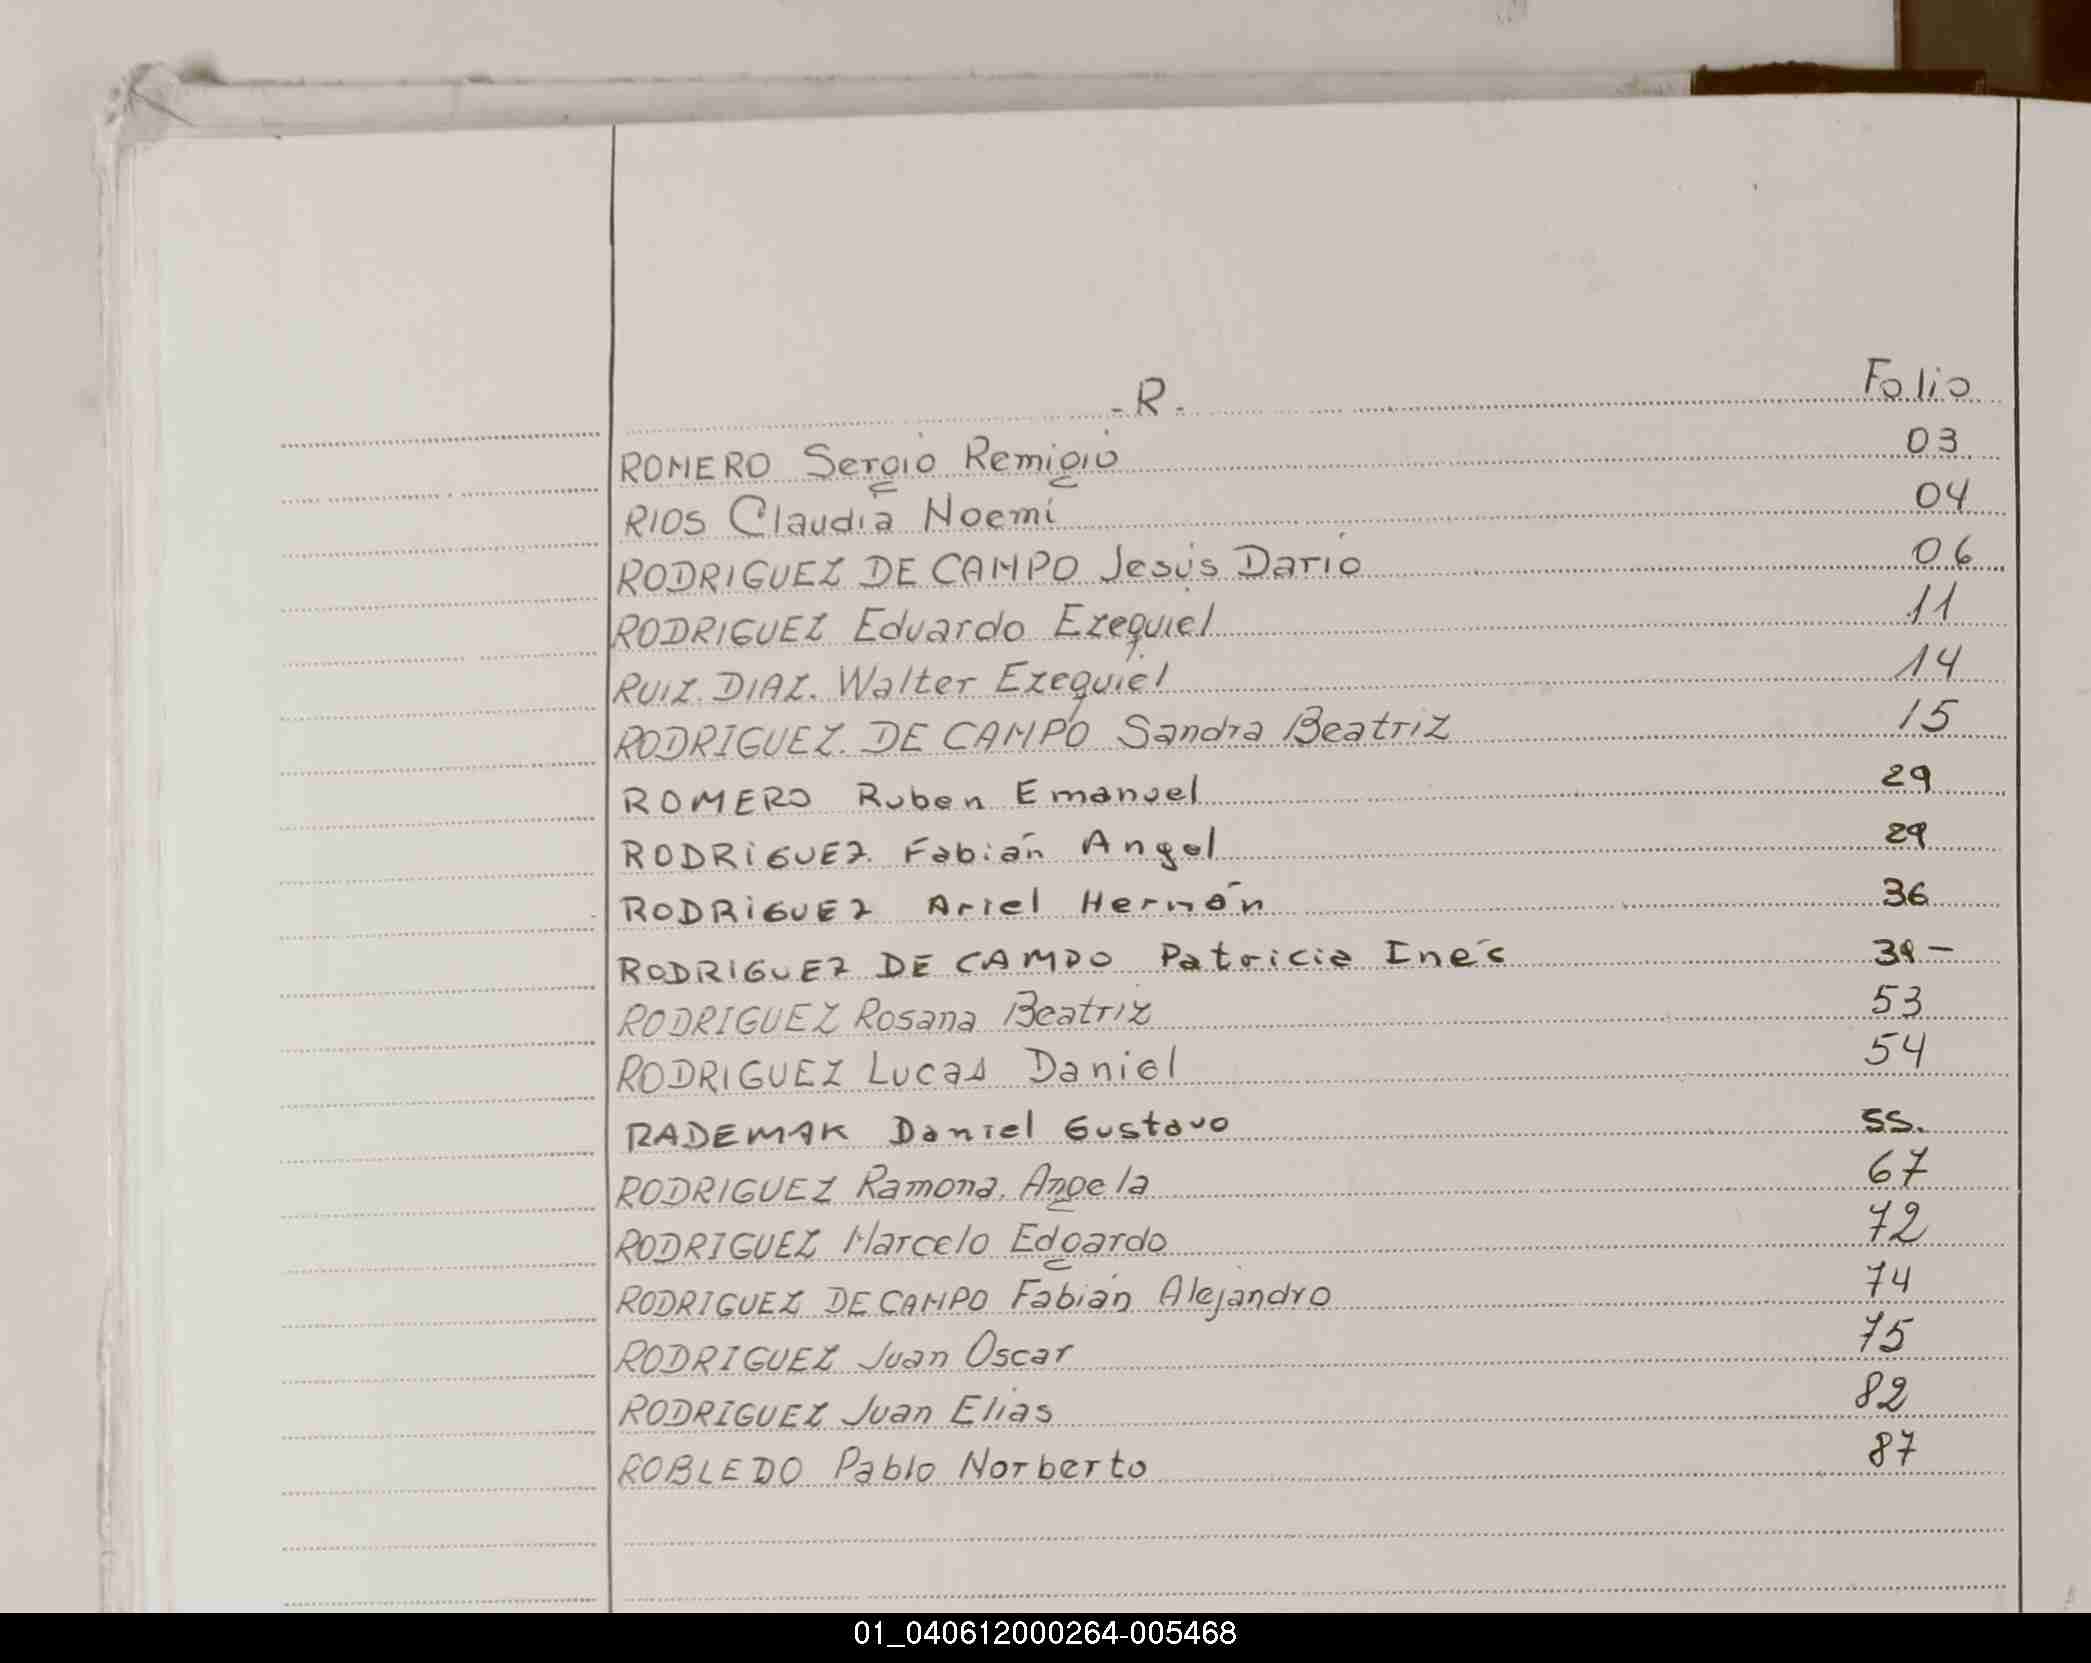 - R - Folio
ROMERO Sergio Remigio 03
RIOS Claudia Noemí 04
RODRIGUEZ DE CAMPO Jesús Darío 06
RODRIGUEZ Eduardo Ezequiel 11
RUIZ DIAZ. Walter Ezequiel 14
RODRIGUEZ. DE CAMPO Sandra Beatriz 15
ROMERO Ruben Emanuel 29
RODRIGUEZ Fabián Angel 29
RODRIGUEZ Ariel Hernán 36
RODRIGUEZ DE CAMPO Patricia Inés 39 -
RODRIGUEZ Rosana Beatriz 53
RODRIGUEZ Lucas Daniel 54
RADEMAK Daniel Gustavo 55.
RODRIGUEZ Ramona Angela 67
RODRIGUEZ Marcelo Edgardo 72
RODRIGUEZ DE CAMPO Fabián Alejandro 74
RODRIGUEZ Juan Oscar 75
RODRIGUEZ Juan Elias 82
ROBLEDO Pablo Norberto 87
01_040612000264-005468